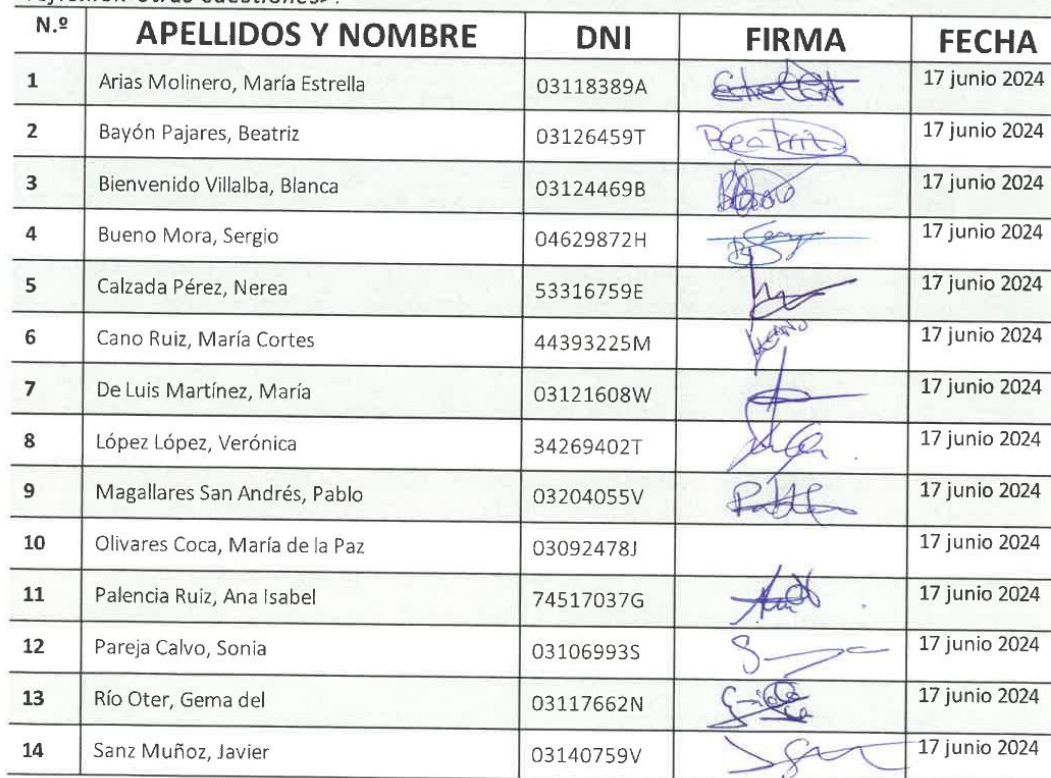 otras cuestiones>.
N.º APELLIDOS Y NOMBRE DNI FIRMA FECHA
1 Arias Molinero, María Estrella 03118389A 17 junio 2024
2 Bayón Pajares, Beatriz 03126459T Beatriz 17 junio 2024
3 Bienvenido Villalba, Blanca 03124469B 17 junio 2024
4 Bueno Mora, Sergio 04629872H 17 junio 2024
5 Calzada Pérez, Nerea 53316759E 17 junio 2024
6 Cano Ruiz, María Cortes 44393225M 17 junio 2024
7 De Luis Martínez, María 03121608W 17 junio 2024
8 López López, Verónica 34269402T 17 junio 2024
9 Magallares San Andrés, Pablo 03204055V 17 junio 2024
10 Olivares Coca, María de la Paz 03092478J 17 junio 2024
11 Palencia Ruiz, Ana Isabel 74517037G 17 junio 2024
12 Pareja Calvo, Sonia 03106993S 17 junio 2024
13 Río Oter, Gema del 03117662N 17 junio 2024
14 Sanz Muñoz, Javier 03140759V 17 junio 2024